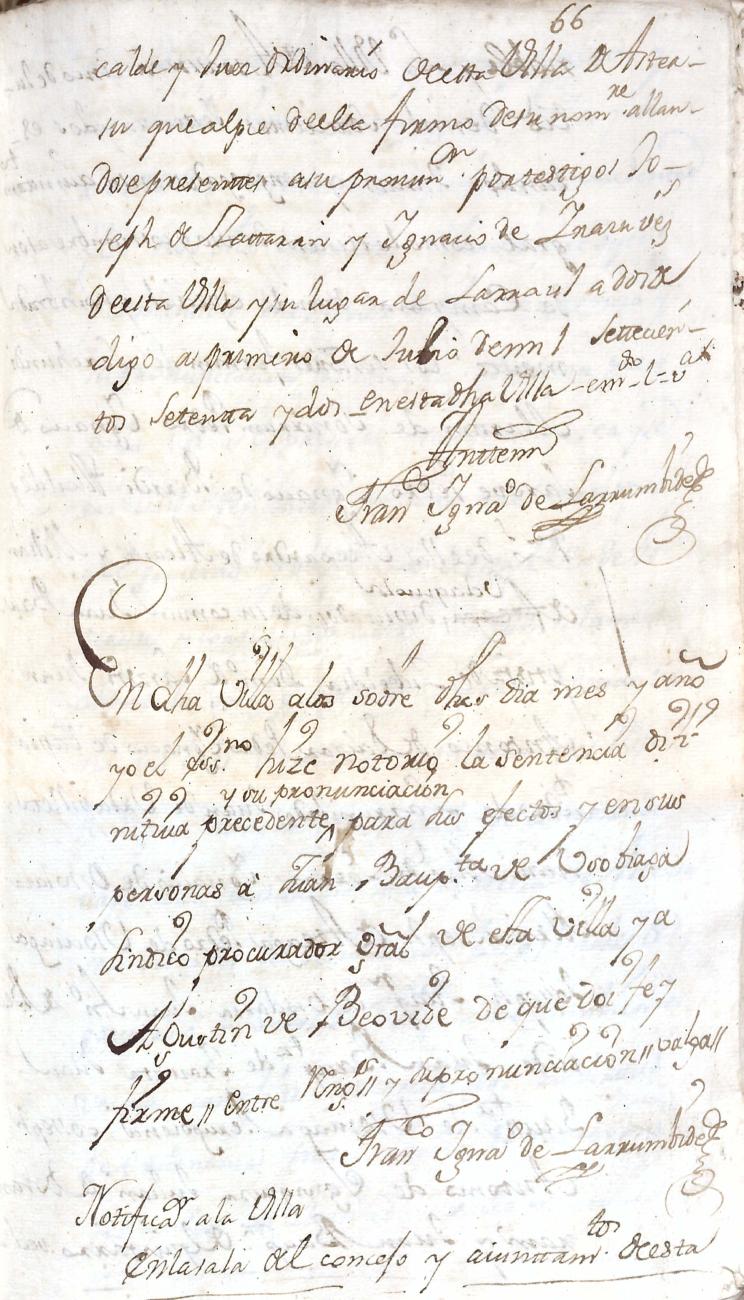 66
calde y Juez ordinario de esta Villa de Astea-
su que al pie de ella firmo de su nomre allan-
dose presentes a su pronunon por testigos Jo-
seph de Olattarain y Ygnacio de Ynarra vezs
de esta Villa y su lugar de Larraul a dos de
digo a primero de Julio de mil settecien-
tos setentta y dos en esta dha Villa = emdo = l = v
Anttemi
Franco Ygnao de Larrumbide
En dha Villa a los sobre dhos dia mes y año
yo el essno hize notorio la sentencia difi-
y su pronunciacion
nitiva precedente, para sus efectos y en sus
personas à Juan Baupta de Usobiaga
sindico procurador Gral de esta Villa y a
Agustin de Beovide de que doi fe y
firme // entre Rngs // y su pronunciacion // valga //
Franco Ygnao de Larrumbide
Notificaon a la Villa
En la sala del concejo y aiunttamtos de esta